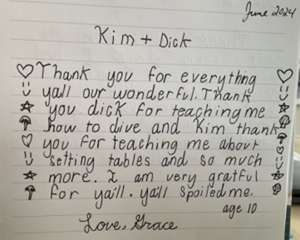 June 2024
Kim + Dick
Thank you for everything
yall our wonderful. Thank
you dick for teaching me
how to dive and Kim thank
you for teaching me about
setting tables and so much
more. I am very gratful
for ya'll. yall spoiled me.
age 10
Love, Grace